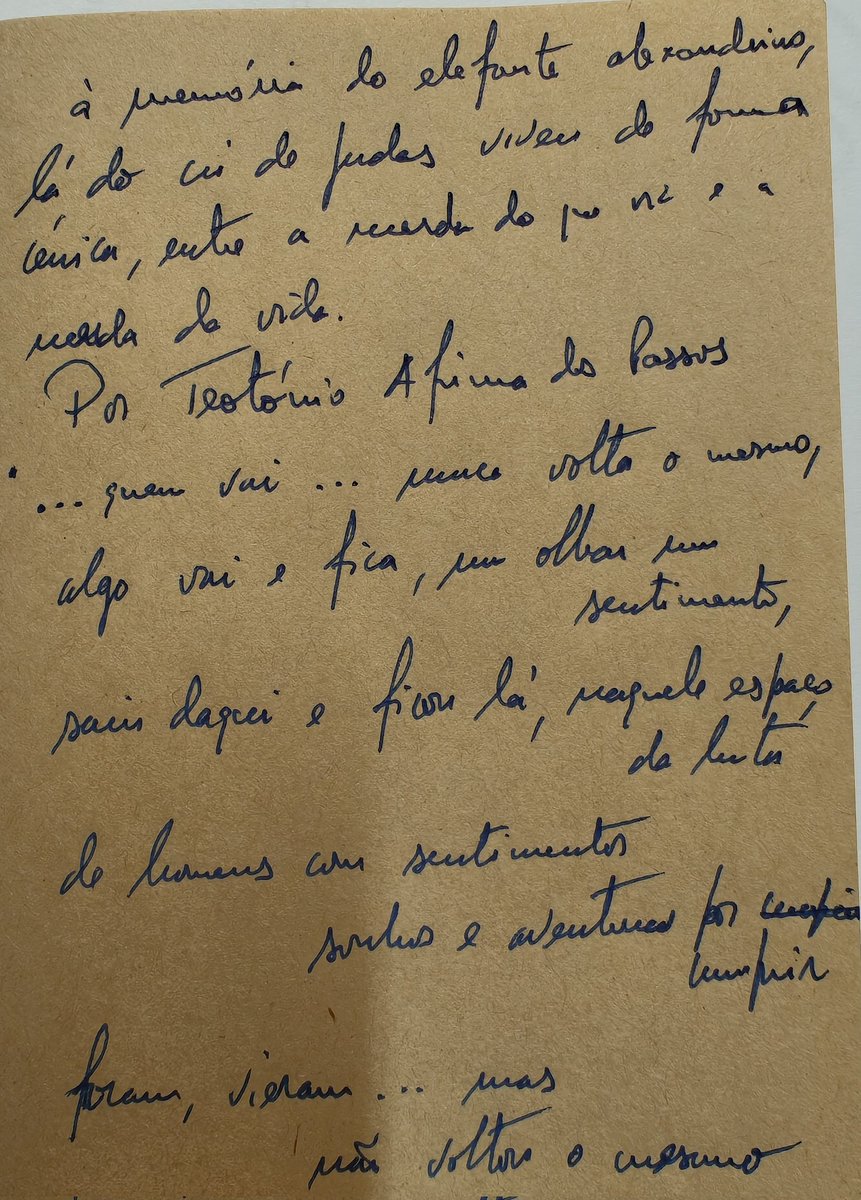 à memória do elefante alexandrino,
lá do cu de judas viveu de forma
cénica, entre a merda do que viu e a
merda da vida.
Por Teotónio Afirma do Passos
"... quem vai ... nunca volta o mesmo,
algo vai e fica, um olhar um
sentimento,
saiu daqui e ficou lá, naquele espaço
de luta
de homens com sentimentos
sonhos e aventuras por
cumprir
foram, vieram ... mas
não voltou o mesmo